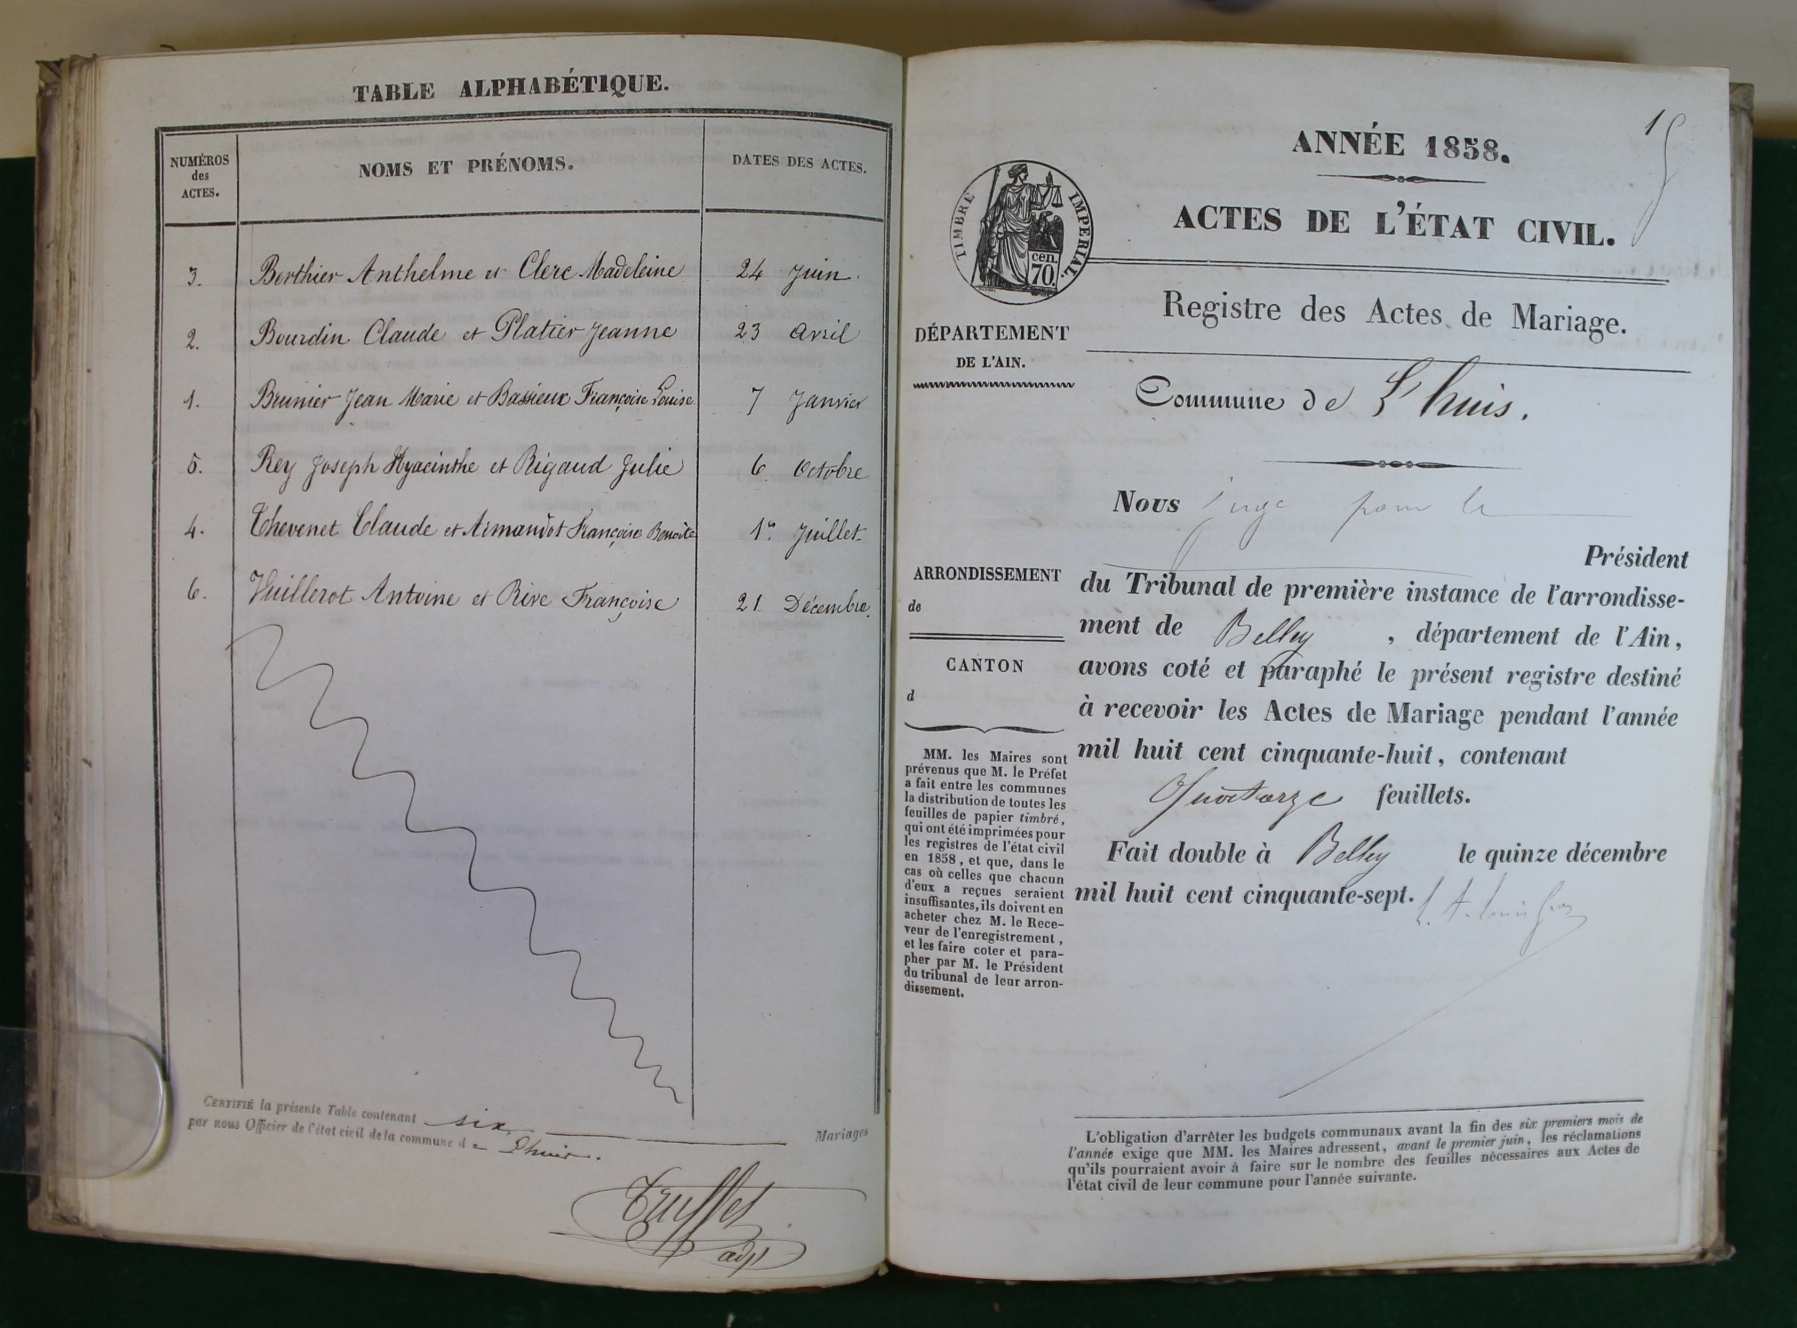 TABLE ALPHABÉTIQUE.
NUMÉROS des ACTES. NOMS ET PRÉNOMS. DATES DES ACTES.
3. Berthier Anthelme et Clerc Madeleine 24 Juin.
2. Bourdin Claude et Platier Jeanne 23 Avril
1. Brunier Jean Marie et Bassieux Françoise Louise 7 Janvier
5. Rey Joseph Hyacinthe et Rigaud Julie 6 Octobre
4. Thevenet Claude et Armandot Françoise Benoite 1er Juillet
6. Vuillerot Antoine et Rive Françoise 21 Décembre.
CERTIFIÉ la présente Table contenant six Mariages
par nous Officier de l'état civil de la commune de Lhuis.
Truffet
adjt
1
ANNÉE 1858.
ACTES DE L'ÉTAT CIVIL.
TIMBRE IMPERIAL.
cen.
70.
Registre des Actes de Mariage.
DÉPARTEMENT
DE L'AIN.
Commune de Lhuis.
Nous juge pour le
Président
du Tribunal de première instance de l'arrondisse-
ment de Belley, département de l'Ain,
avons coté et paraphé le présent registre destiné
à recevoir les Actes de Mariage pendant l'année
mil huit cent cinquante-huit, contenant
Quatorze feuillets.
Fait double à Belley le quinze décembre
mil huit cent cinquante-sept.
ARRONDISSEMENT
de
CANTON
d
MM. les Maires sont
prévenus que M. le Préfet
a fait entre les communes
la distribution de toutes les
feuilles de papier timbré,
qui ont été imprimées pour
les registres de l'état civil
en 1858, et que, dans le
cas où celles que chacun
d'eux a reçues seraient
insuffisantes, ils doivent en
acheter chez M. le Rece-
veur de l'enregistrement,
et les faire coter et para-
pher par M. le Président
du tribunal de leur arron-
dissement.
L'obligation d'arrêter les budgets communaux avant la fin des six premiers mois de
l'année exige que MM. les Maires adressent, avant le premier juin, les réclamations
qu'ils pourraient avoir à faire sur le nombre des feuilles nécessaires aux Actes de
l'état civil de leur commune pour l'année suivante.